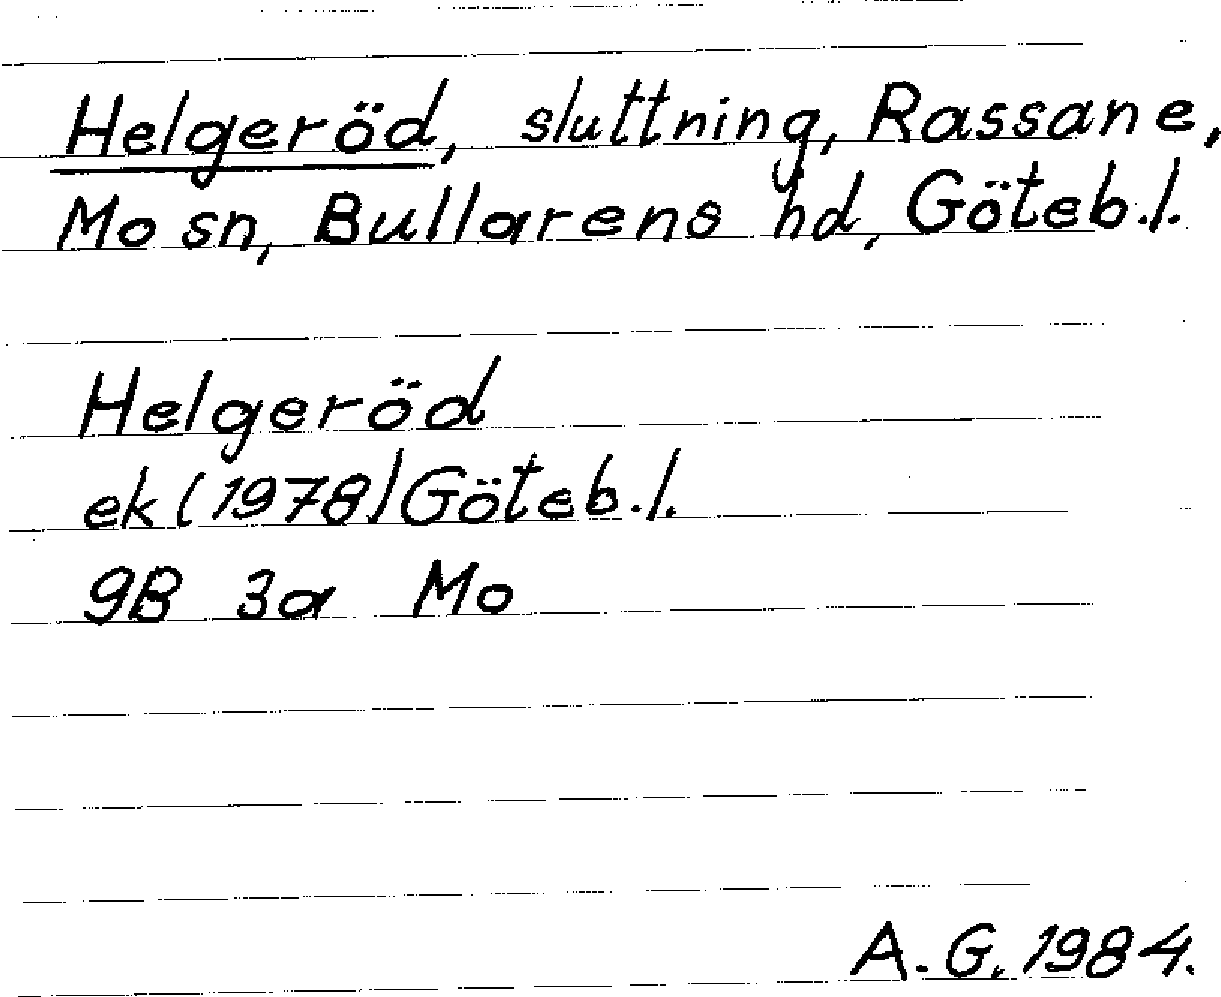 Helgeröd, sluttning, Rassane,
Mo sn, Bullarens hd, Göteb.l.
Helgeröd
ek (1978) Göteb.l.
9B 3a Mo
A.G. 1984.